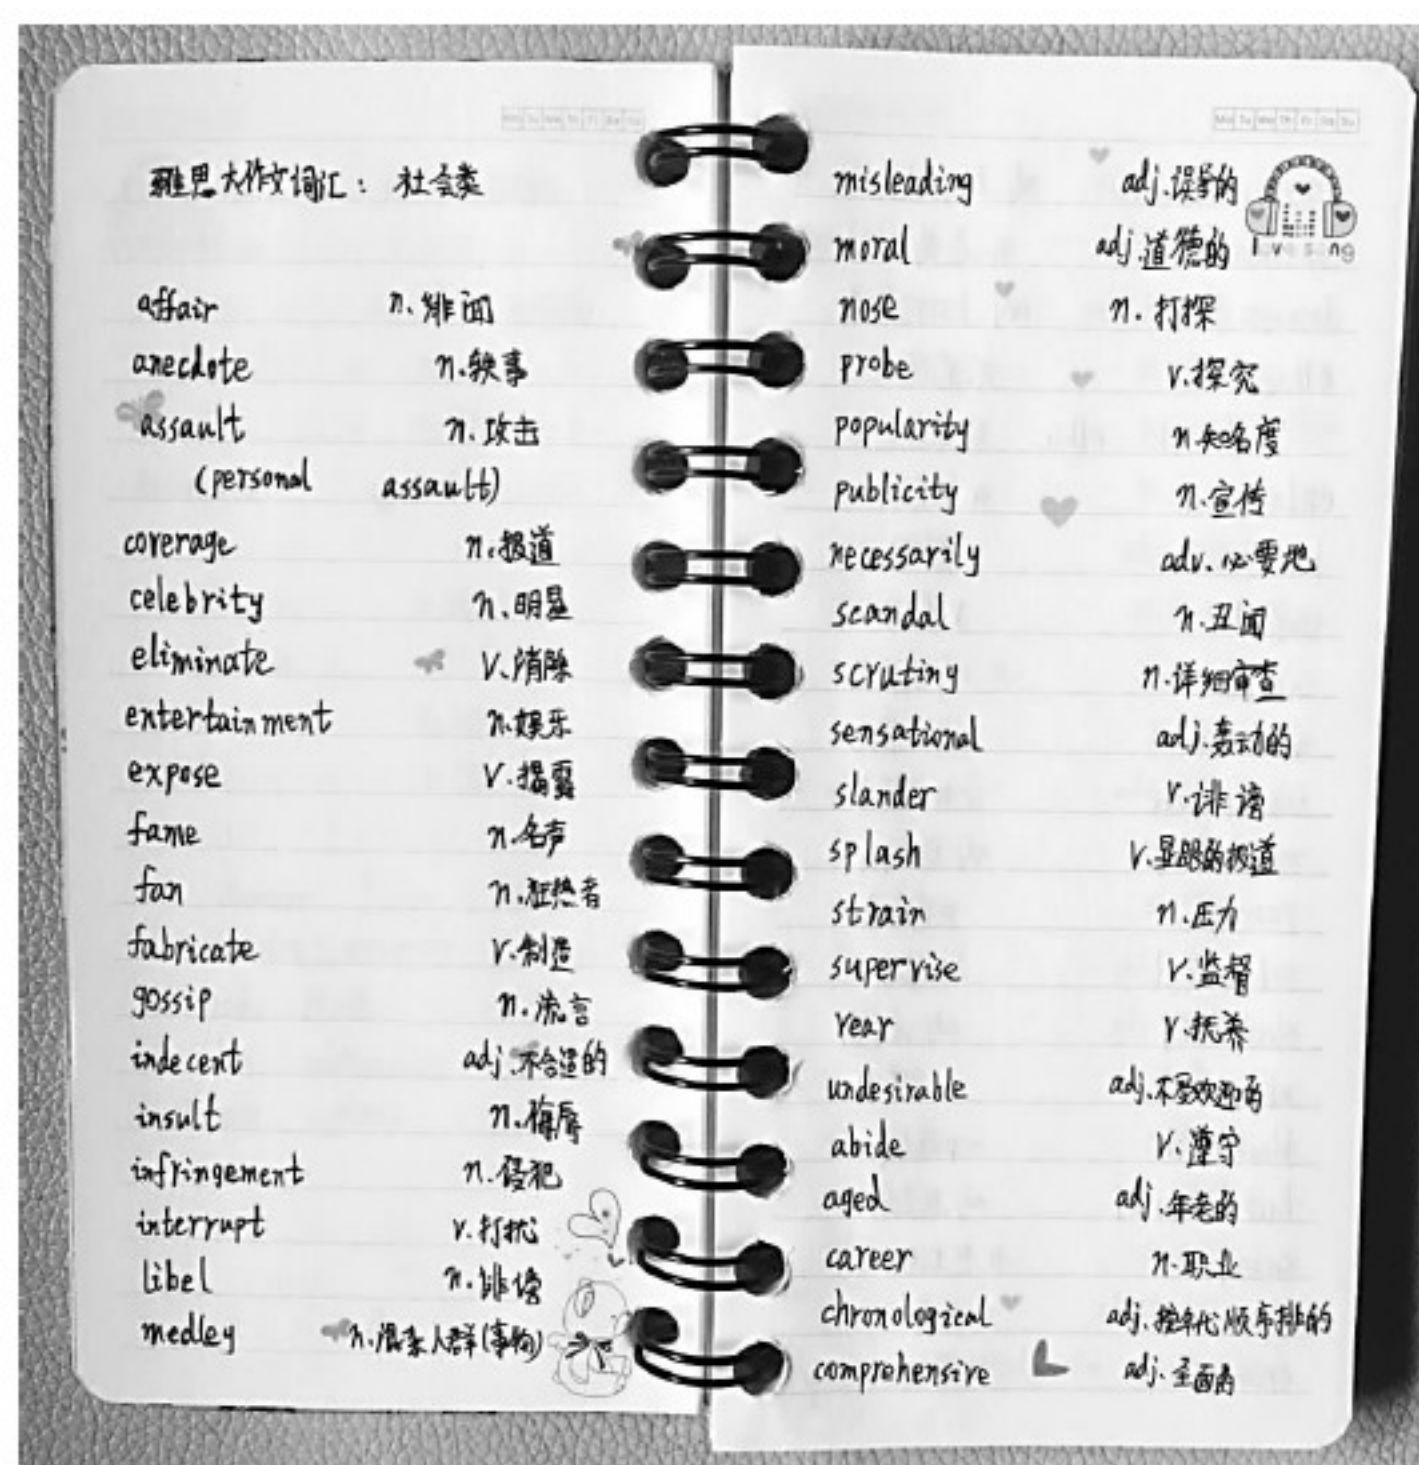 雅思大作文词汇：社会类
affair n.绯闻
anecdote n.轶事
assault n.攻击
(personal assault)
coverage n.报道
celebrity n.明星
eliminate v.消除
entertainment n.娱乐
expose v.揭露
fame n.名声
fan n.狂热者
fabricate v.制造
gossip n.流言
indecent adj.不合适的
insult n.侮辱
infringement n.侵犯
interrupt v.打扰
libel n.诽谤
medley n.混杂人群(事物)
misleading adj.误导的
moral adj.道德的
nose n.打探
probe v.探究
popularity n.知名度
publicity n.宣传
necessarily adv.必要地
scandal n.丑闻
scrutiny n.详细审查
sensational adj.轰动的
slander v.诽谤
splash v.显眼的报道
strain n.压力
supervise v.监督
rear v.抚养
undesirable adj.不受欢迎的
abide v.遵守
aged adj.年老的
career n.职业
chronological adj.按年代顺序排的
comprehensive adj.全面的
Mo Tu We Th Fr Sa Su
love song